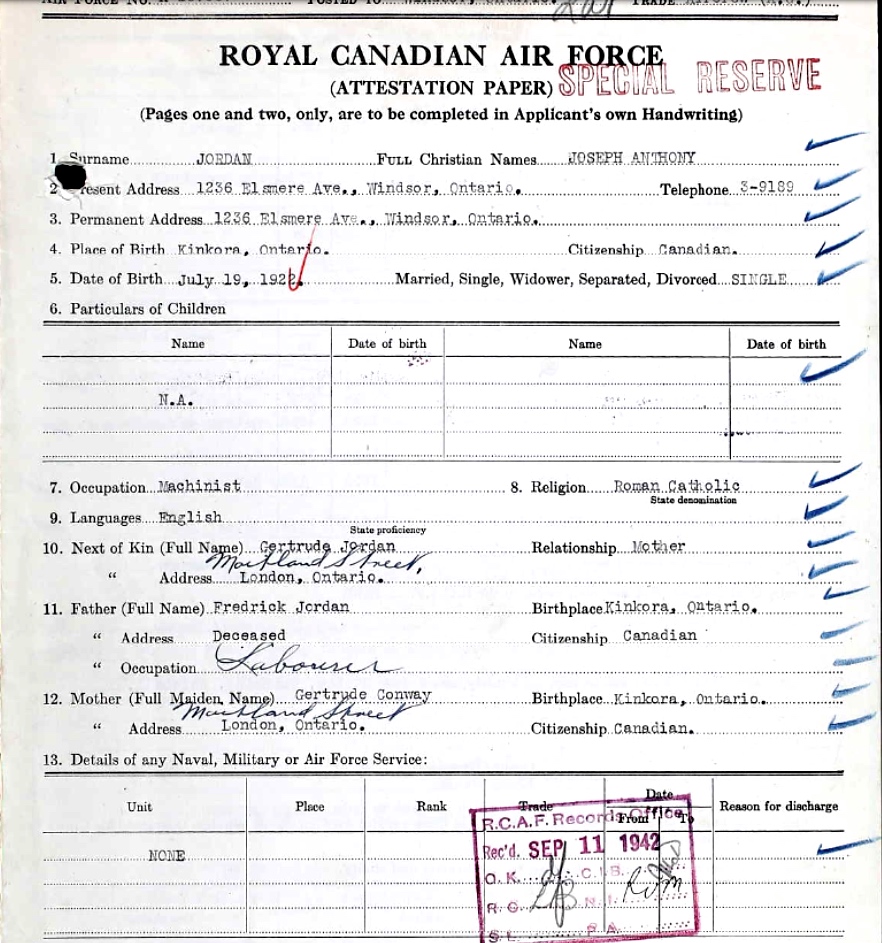 ROYAL CANADIAN AIR FORCE
(ATTESTATION PAPER) SPECIAL RESERVE
(Pages one and two, only, are to be completed in Applicant's own Handwriting)
1. Surname JORDAN FULL Christian Names JOSEPH ANTHONY
2 resent Address 1236 Elsmere Ave., Windsor, Ontario. Telephone 3-9189
3. Permanent Address 1236 Elsmere Ave., Windsor, Ontario.
4. Place of Birth Kinkora, Ontario. Citizenship Canadian.
5. Date of Birth July 19, 1922. Married, Single, Widower, Separated, Divorced SINGLE
6. Particulars of Children
Name Date of birth Name Date of birth
N.A.
7. Occupation Machinist 8. Religion Roman Catholic
State denomination
9. Languages English
State proficiency
10. Next of Kin (Full Name) Gertrude Jordan Relationship Mother
Maitland Street,
" Address London, Ontario.
11. Father (Full Name) Fredrick Jordan Birthplace Kinkora, Ontario.
" Address Deceased Citizenship Canadian
" Occupation Labourer
12. Mother (Full Maiden Name) Gertrude Conway Birthplace Kinkora, Ontario.
Maitland Street
" Address London, Ontario. Citizenship Canadian.
13. Details of any Naval, Military or Air Force Service:
Unit Place Rank Trade Date From To Reason for discharge
R.C.A.F. Records Office
NONE Rec'd. SEP 11 1942
O.K. C.I.B.
R.G. N.I.
S.L. P.A.